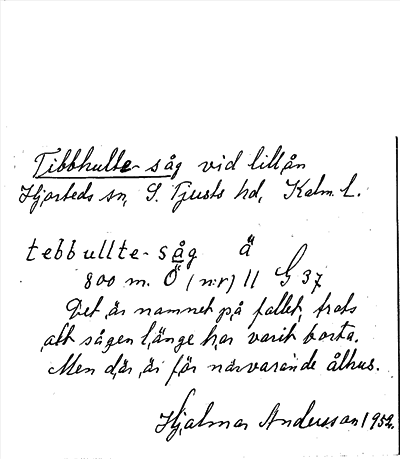 Tibbhulte-såg vid lillån
Hjorteds sn, S. Tjusts hd, Kalm. L.
tebbullte-såg ä
800 m. Ö (nr) 11 G 37
Det är namnet på fallet, trots
att sågen länge har varit borta.
Men där är för närvarande ålhus.
Hjalmar Andersson 1952.